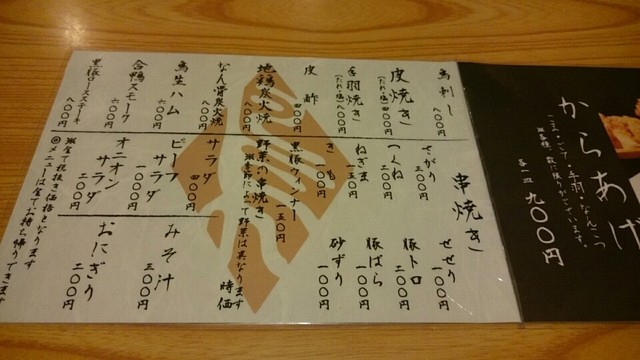 からあげ
各一皿 九〇〇円
鳥刺し 八〇〇円
皮焼き (たれ・塩) 四〇〇円
手羽焼き (たれ・塩) 八〇〇円
皮酢 四〇〇円
地鶏炭火焼 八〇〇円
なんこつ炭火焼 八〇〇円
鳥生ハム 八〇〇円
合鴨スモーク 六〇〇円
黒豚ロースステーキ 八〇〇円
串焼き
さがり 三〇〇円
つくね 二〇〇円
ねぎま 一五〇円
きも 一〇〇円
黒豚ウィンナー 一五〇円
野菜の串焼き
※季節によって野菜は異なります 時価
せせり 一〇〇円
豚トロ 二〇〇円
豚ばら 一〇〇円
砂ずり 一〇〇円
サラダ 四〇〇円
ビーフサラダ 一〇〇〇円
オニオンサラダ 二〇〇円
みそ汁 三〇〇円
おにぎり 二〇〇円
※全て税抜き価格となります
◎メニューは全てお持ち帰りできます